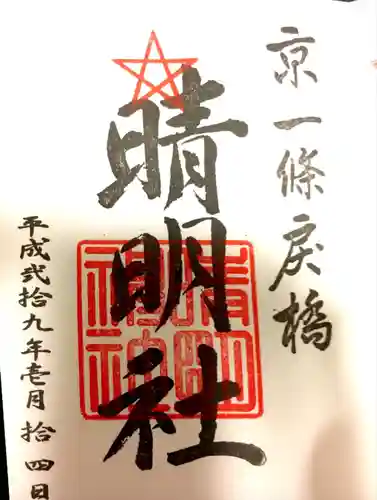 京一條戻橋
晴明社
晴明
神社
平成弐拾九年壱月拾四日